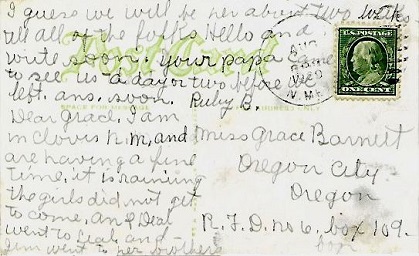 I guess we will be her about two weeks
tell all of the folks Hello and
write soon. your papa came
to see us a day or two before we
left. ans. soon. Ruby B.
Post Card
Dear Grace, I am
in Clovis N.M, and
are having a fine
time, it is raining
the girls did not get
to come, and
went to and
went to her brothers
AUG
N. MEX
U.S. POSTAGE
ONE CENT
Miss Grace Barnett
Oregon City.
Oregon
R.F.D. no 6. box 109.
box